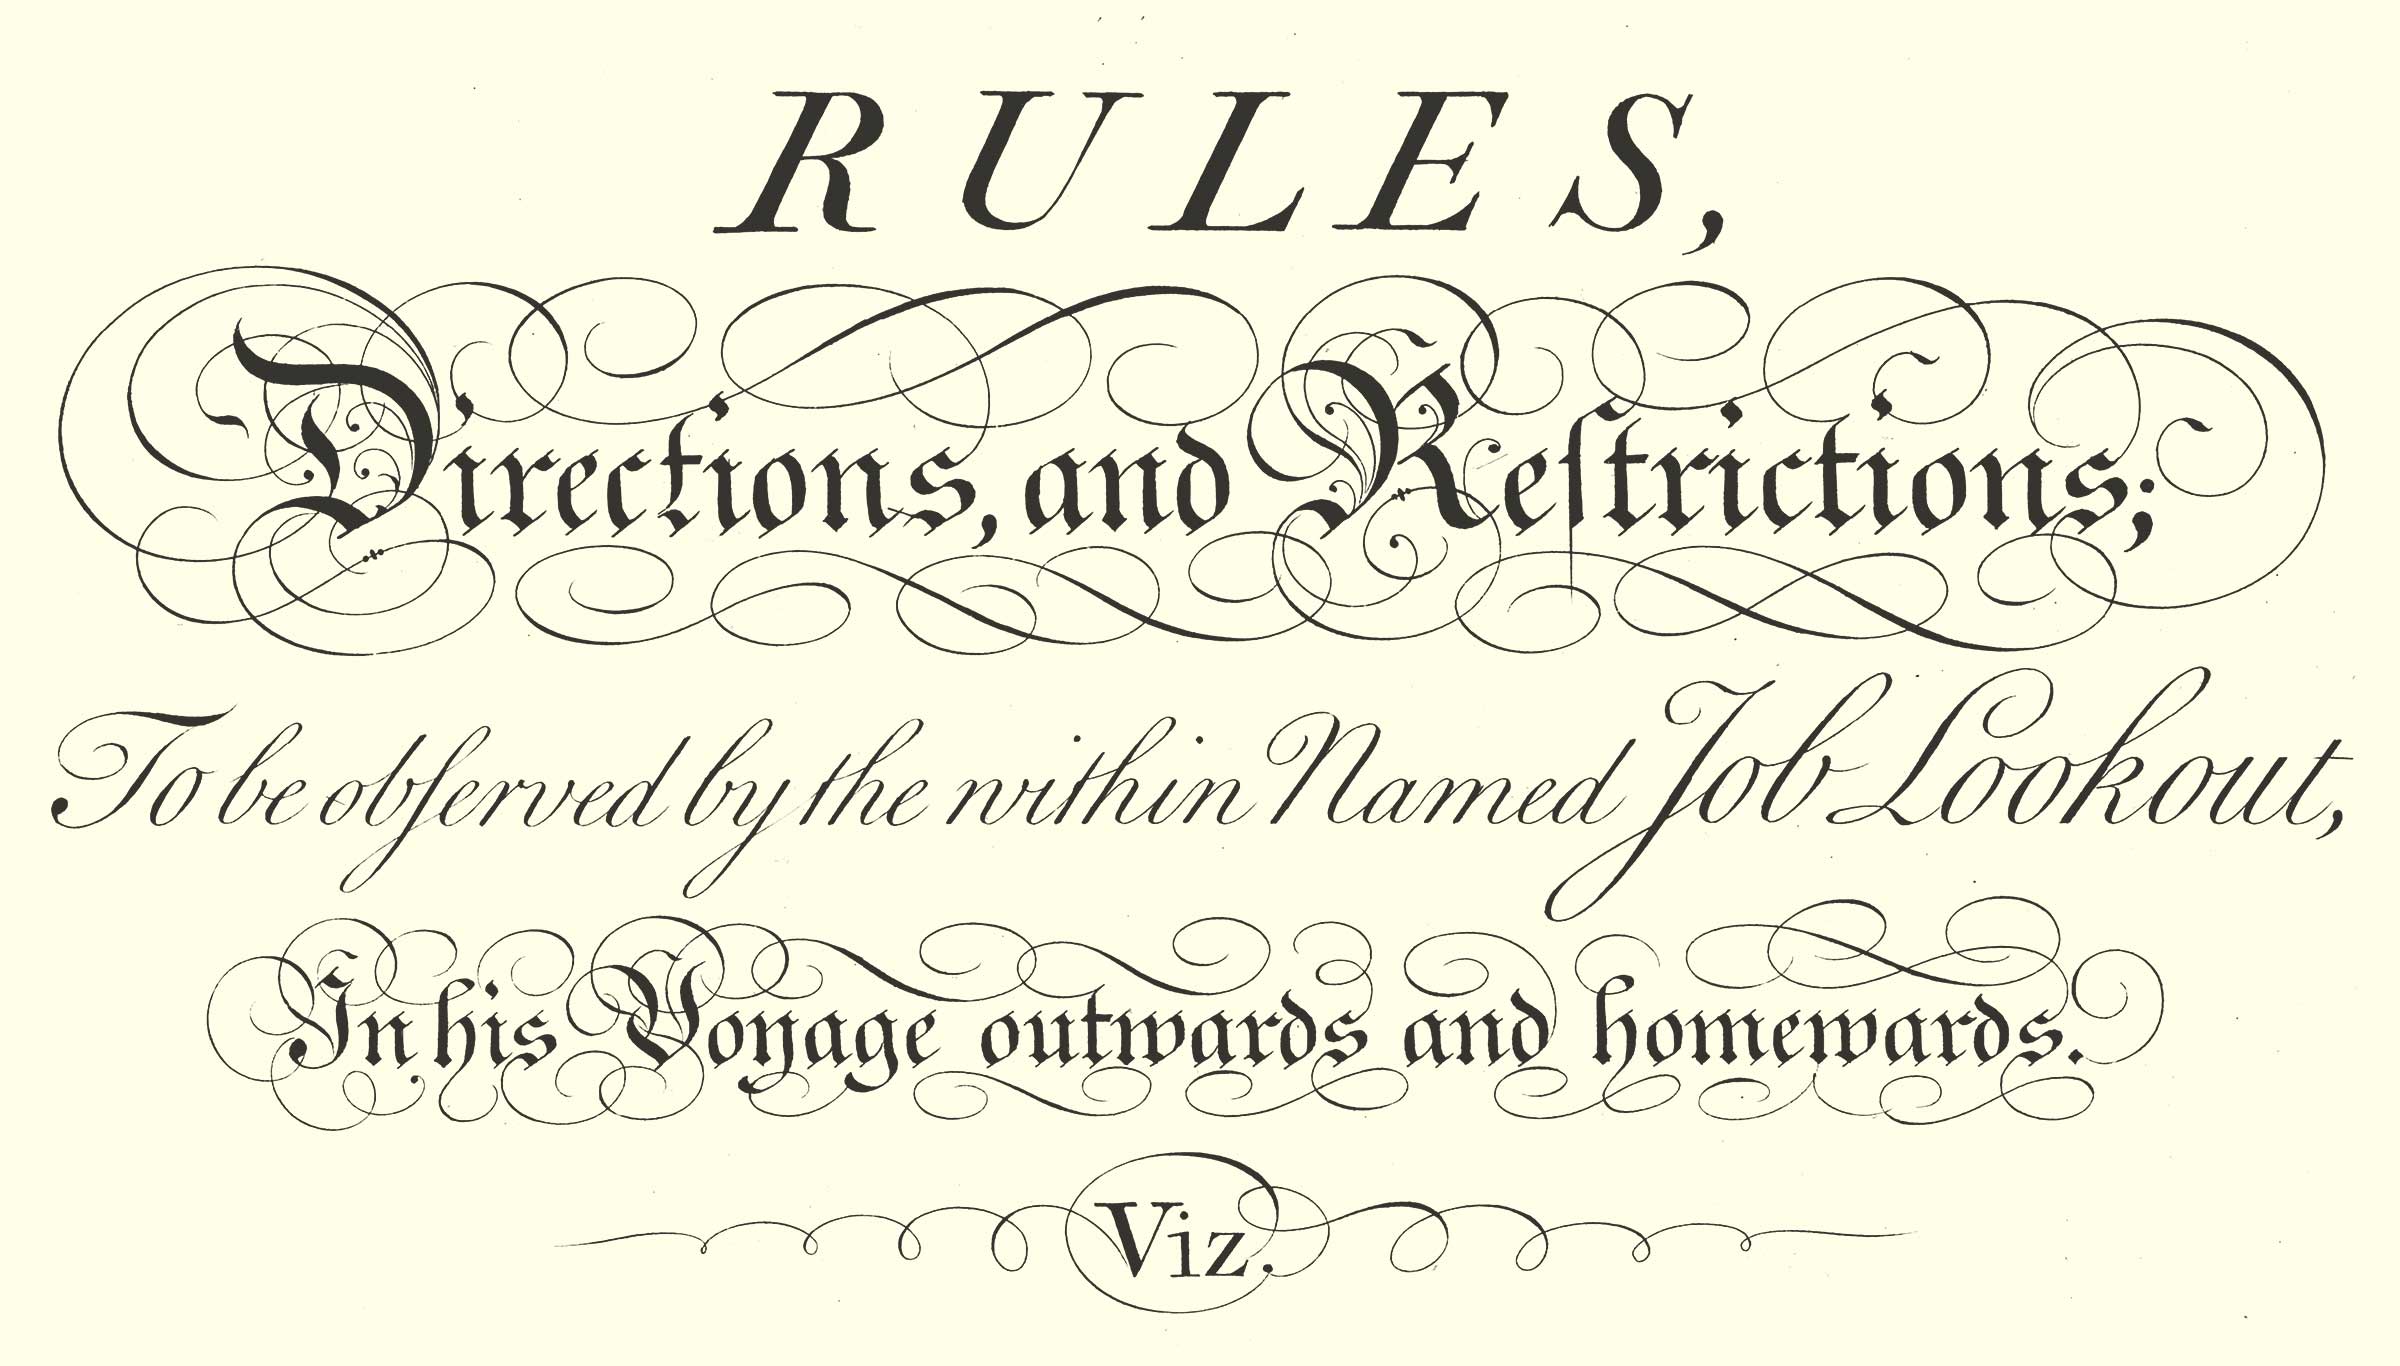 RULES,
Directions, and Reſtrictions;
To be obſerved by the within Named Job Lookout,
In his Voyage outwards and homewards.
Viz.